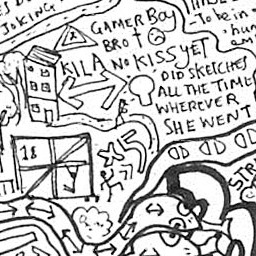 JOKING
GAMER BOY
BRO
KILA
NO KISS YET
DID SKETCHES
ALL THE TIME
WHEREVER
SHE WENT
To be in
18
x5